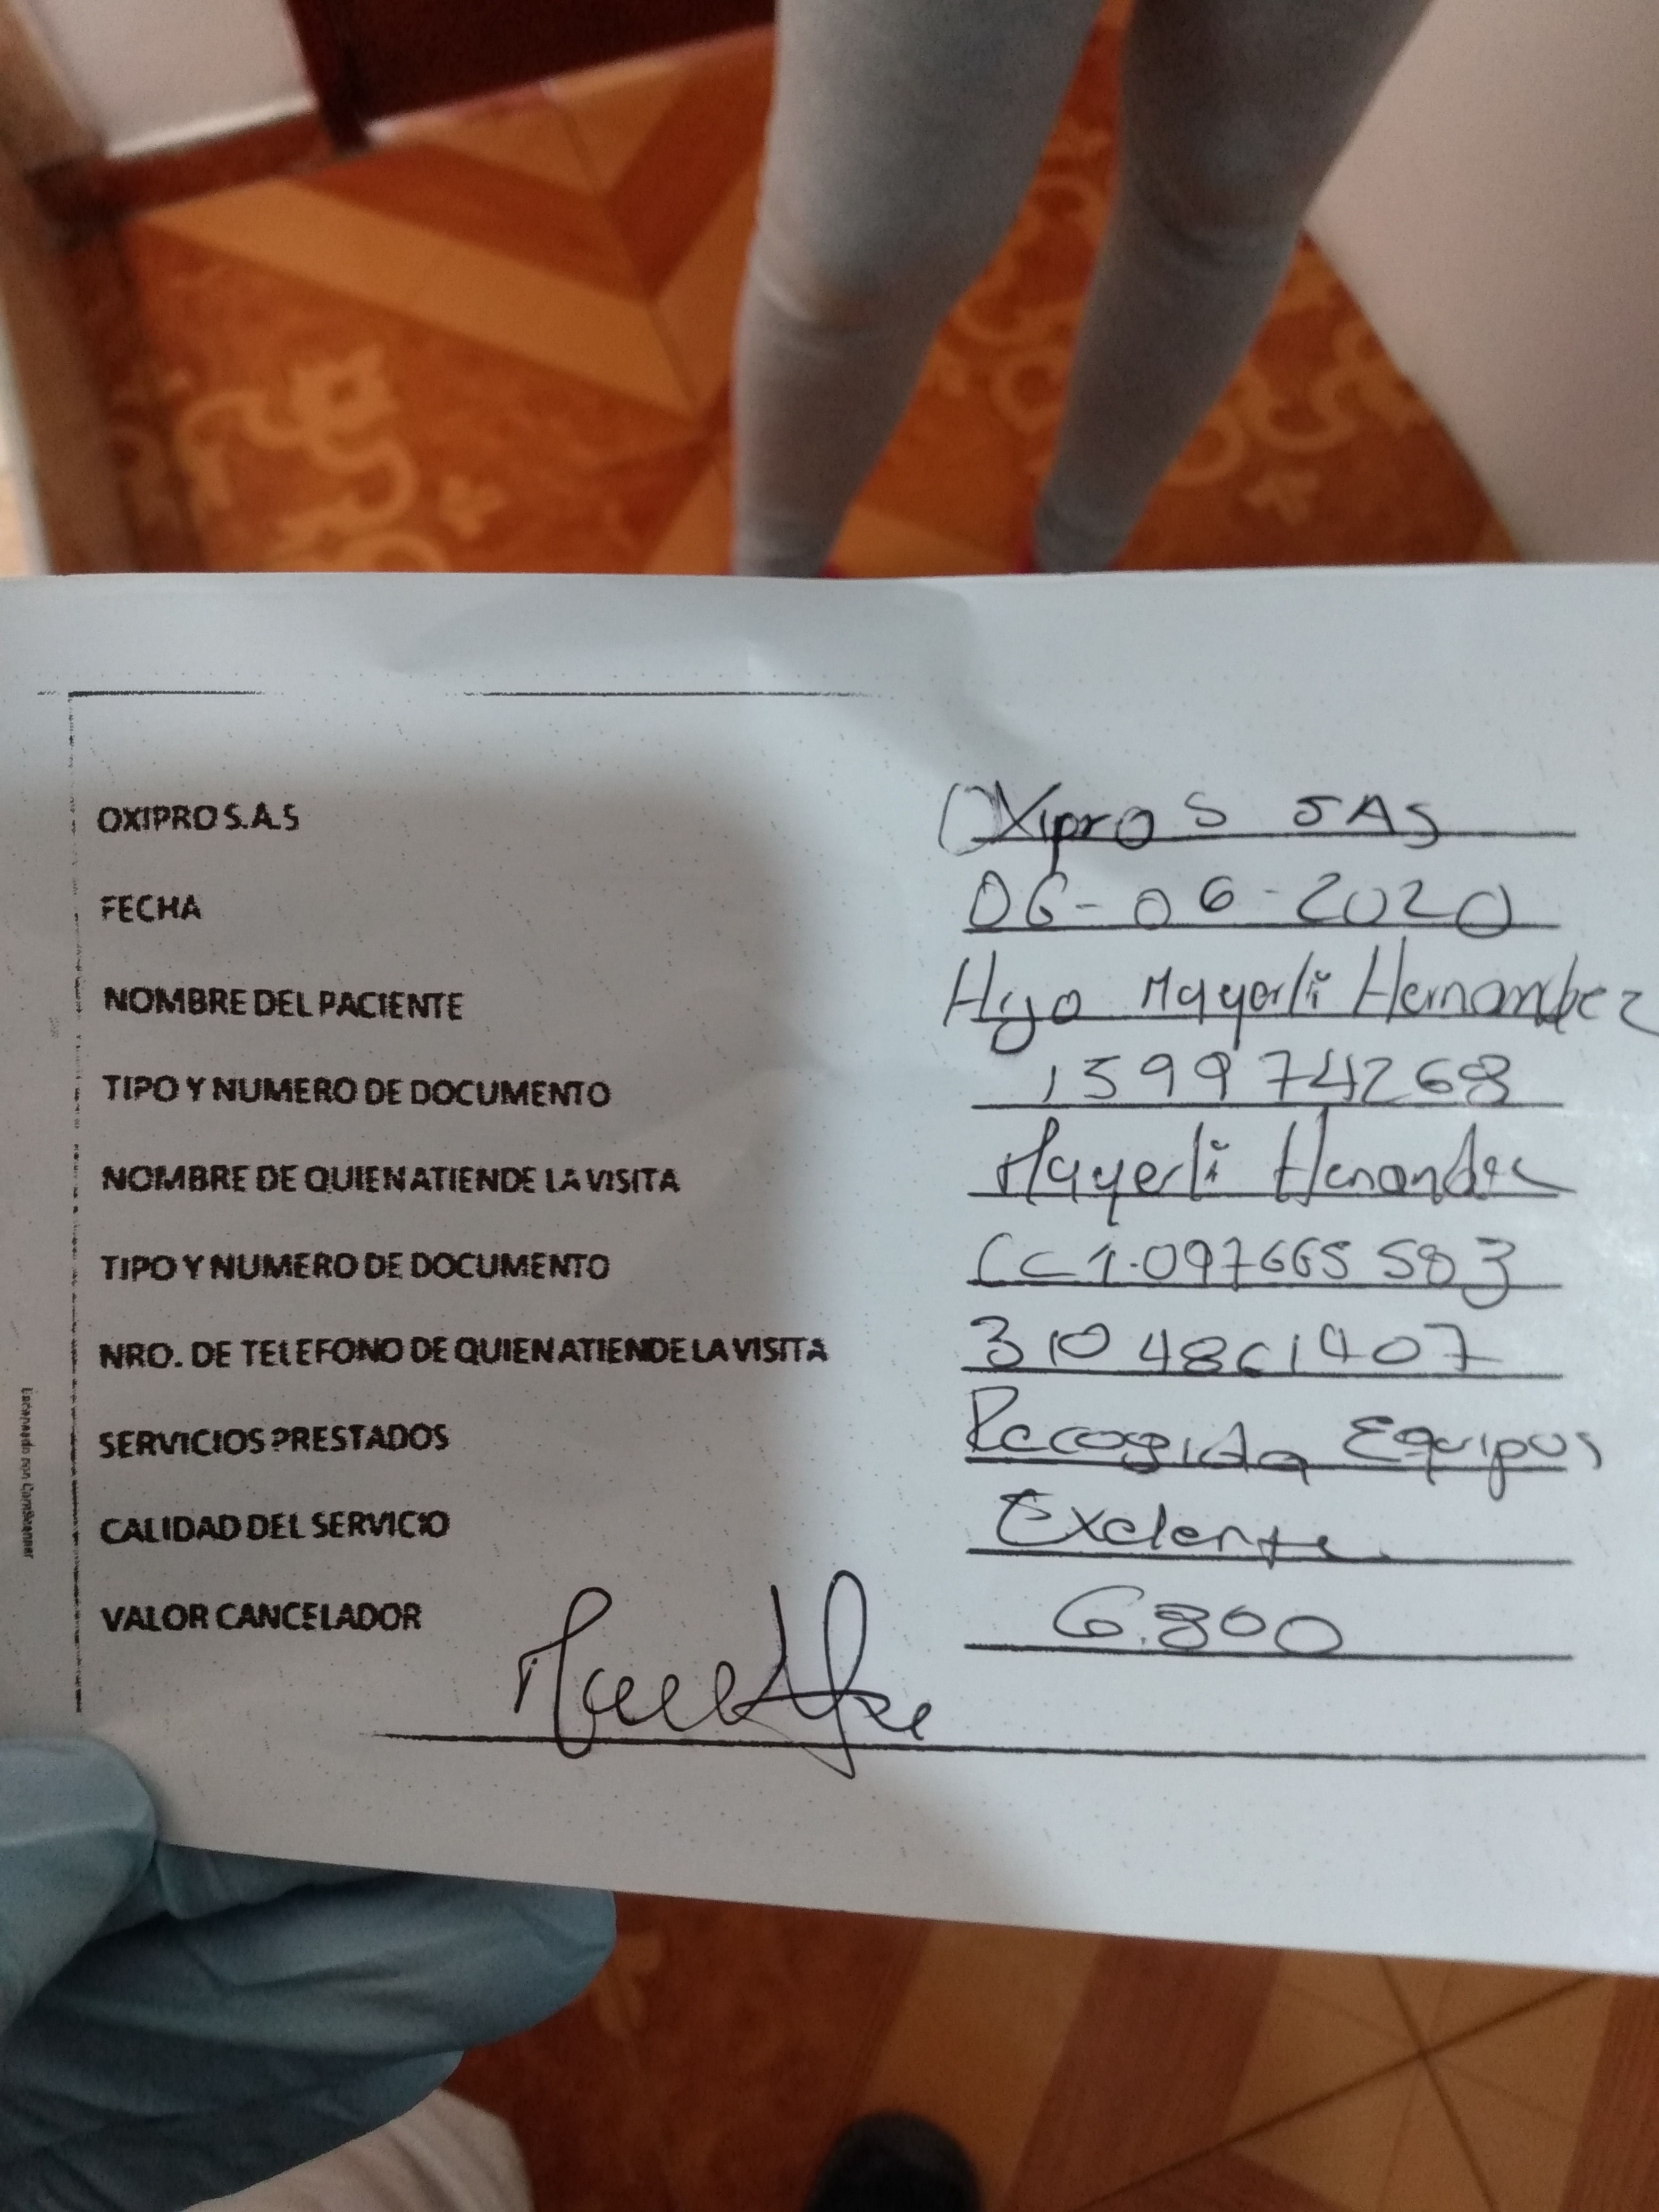 OXIPRO S.A.S OXipro S SAS
FECHA 06-06-2020
NOMBRE DEL PACIENTE Hijo Mayerli Hernandez
TIPO Y NUMERO DE DOCUMENTO 1599974268
NOMBRE DE QUIEN ATIENDE LA VISITA Mayerli Henandez
TIPO Y NUMERO DE DOCUMENTO CC 1.097665583
NRO. DE TELEFONO DE QUIEN ATIENDE LA VISITA
SERVICIOS PRESTADOS Recogida Equipos
CALIDAD DEL SERVICIO Exelente
VALOR CANCELADOR 6.800
Escaneado con CamScanner